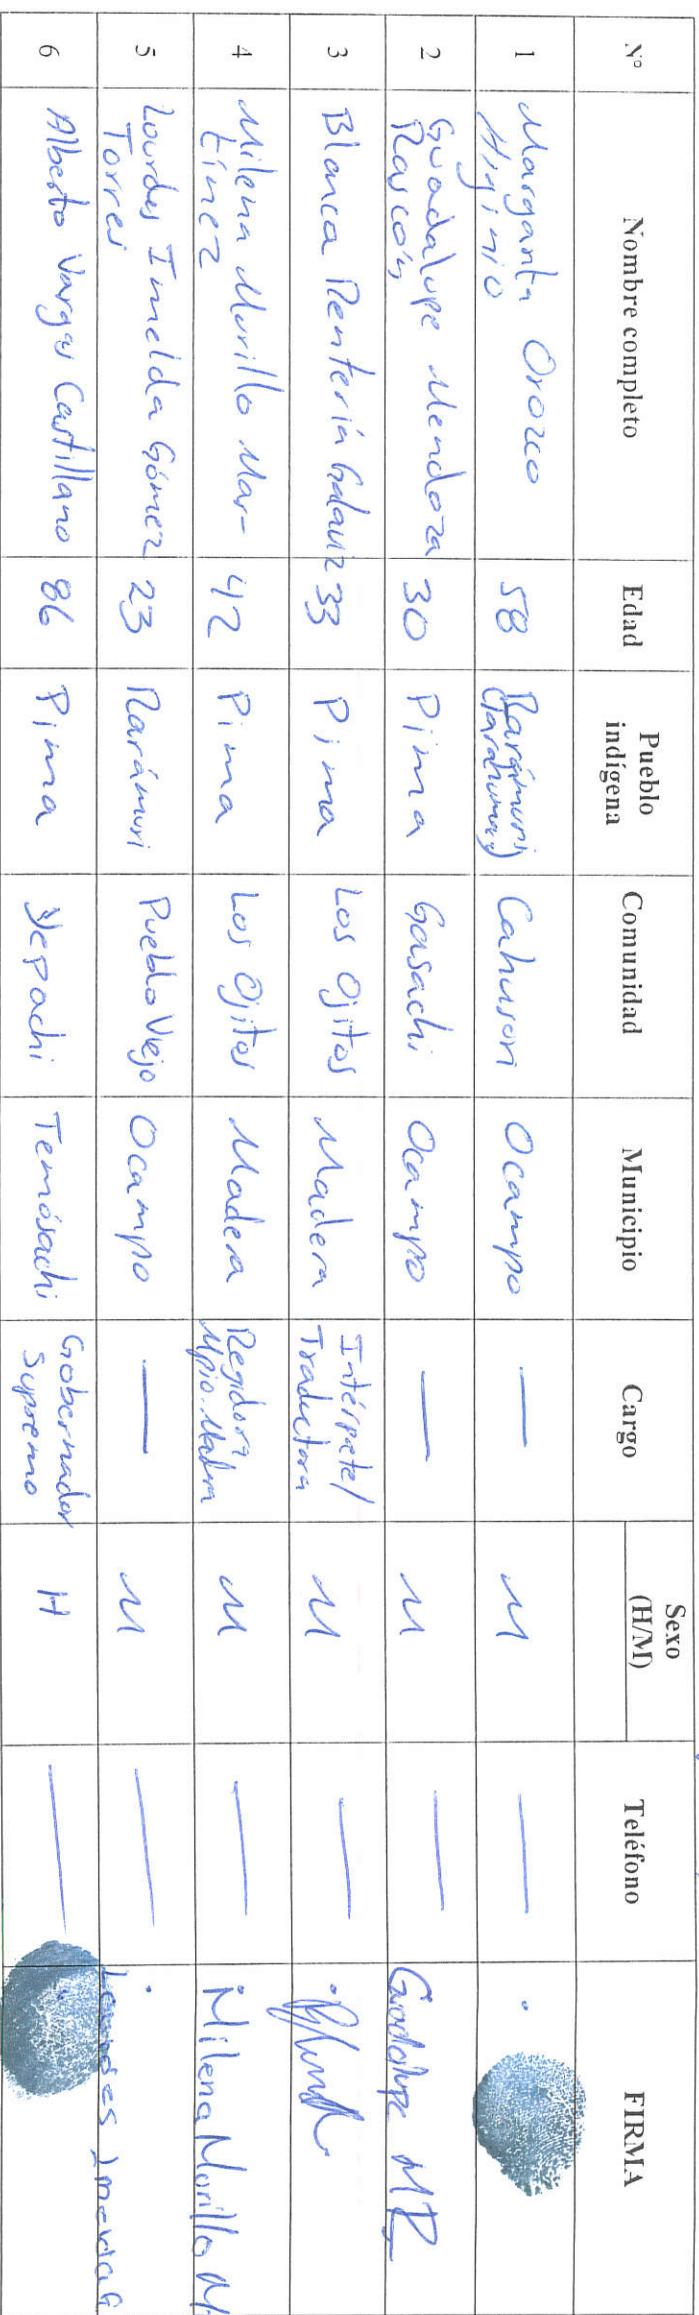 N° Nombre completo Edad Pueblo indígena Comunidad Municipio Cargo Sexo (H/M) Teléfono FIRMA
1 Margarita Orozco Higinio 58 Rarámuri (Tarahumara) Cahusori Ocampo — M —
2 Guadalupe Mendoza Rascón, 30 Pima Gasachi Ocampo — M — Guadalupe MR
3 Blanca Rentería Galaviz 33 Pima Los Ojitos Madera Intérprete/ Traductora M —
4 Milena Murillo Mar- tínez 42 Pima Los Ojitos Madera Regidora Mpio. Madera M — Milena Murillo M
5 Lourdes Imelda Gómez Torres 23 Rarámuri Pueblo Viejo Ocampo — M — Lourdes Imelda G
6 Alberto Vargas Castillano 86 Pima Yepachi Temósachi Gobernador Supremo H —